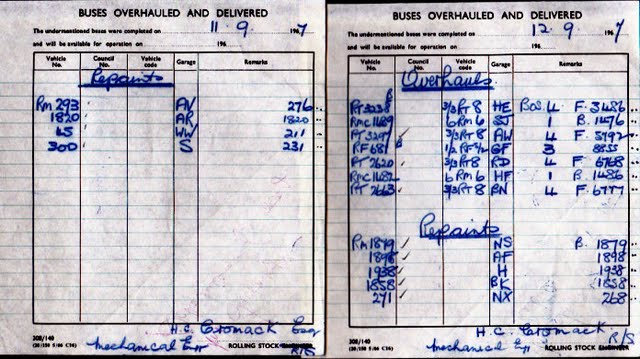 BUSES OVERHAULED AND DELIVERED
The undermentioned buses were completed on 11.9. 1967
and will be available for operation on 196
Vehicle No. Council No. Vehicle code Garage Remarks
Repaints
RM 293 AV 276
1820 AR 1820
45 WW 211
300 S 231
H.C. Cromack Esq
308/140
(20/150 5/66 C36)
Mechanical Engr
ROLLING STOCK ENGINEER
R/S
BUSES OVERHAULED AND DELIVERED
The undermentioned buses were completed on 12.9. 1967
and will be available for operation on 196
Vehicle No. Council No. Vehicle code Garage Remarks
Overhauls
RT 3238 3/3 RT 8 HE BOS. 4 F. 3486
RMC 1489 6 RM 6 ST 1 B. 1476
RT 3297 3/3 RT 8 AW 4 F.
RF 681 GF 3 8855
RT 2620 3/3 RT 8 RD 4 F. 6768
6 RM 6 HF 1 B. 1486
RT 2663 3/3 RT 8 BN 4 F. 6777
Repaints
RM 1879 NS B. 1879
1898 AF 1898
1938 H 1938
1858 BK 1858
271 NX 268
H.C. Cromack Esq
308/140
Mechanical Engr
ROLLING STOCK ENGINEER
R/S